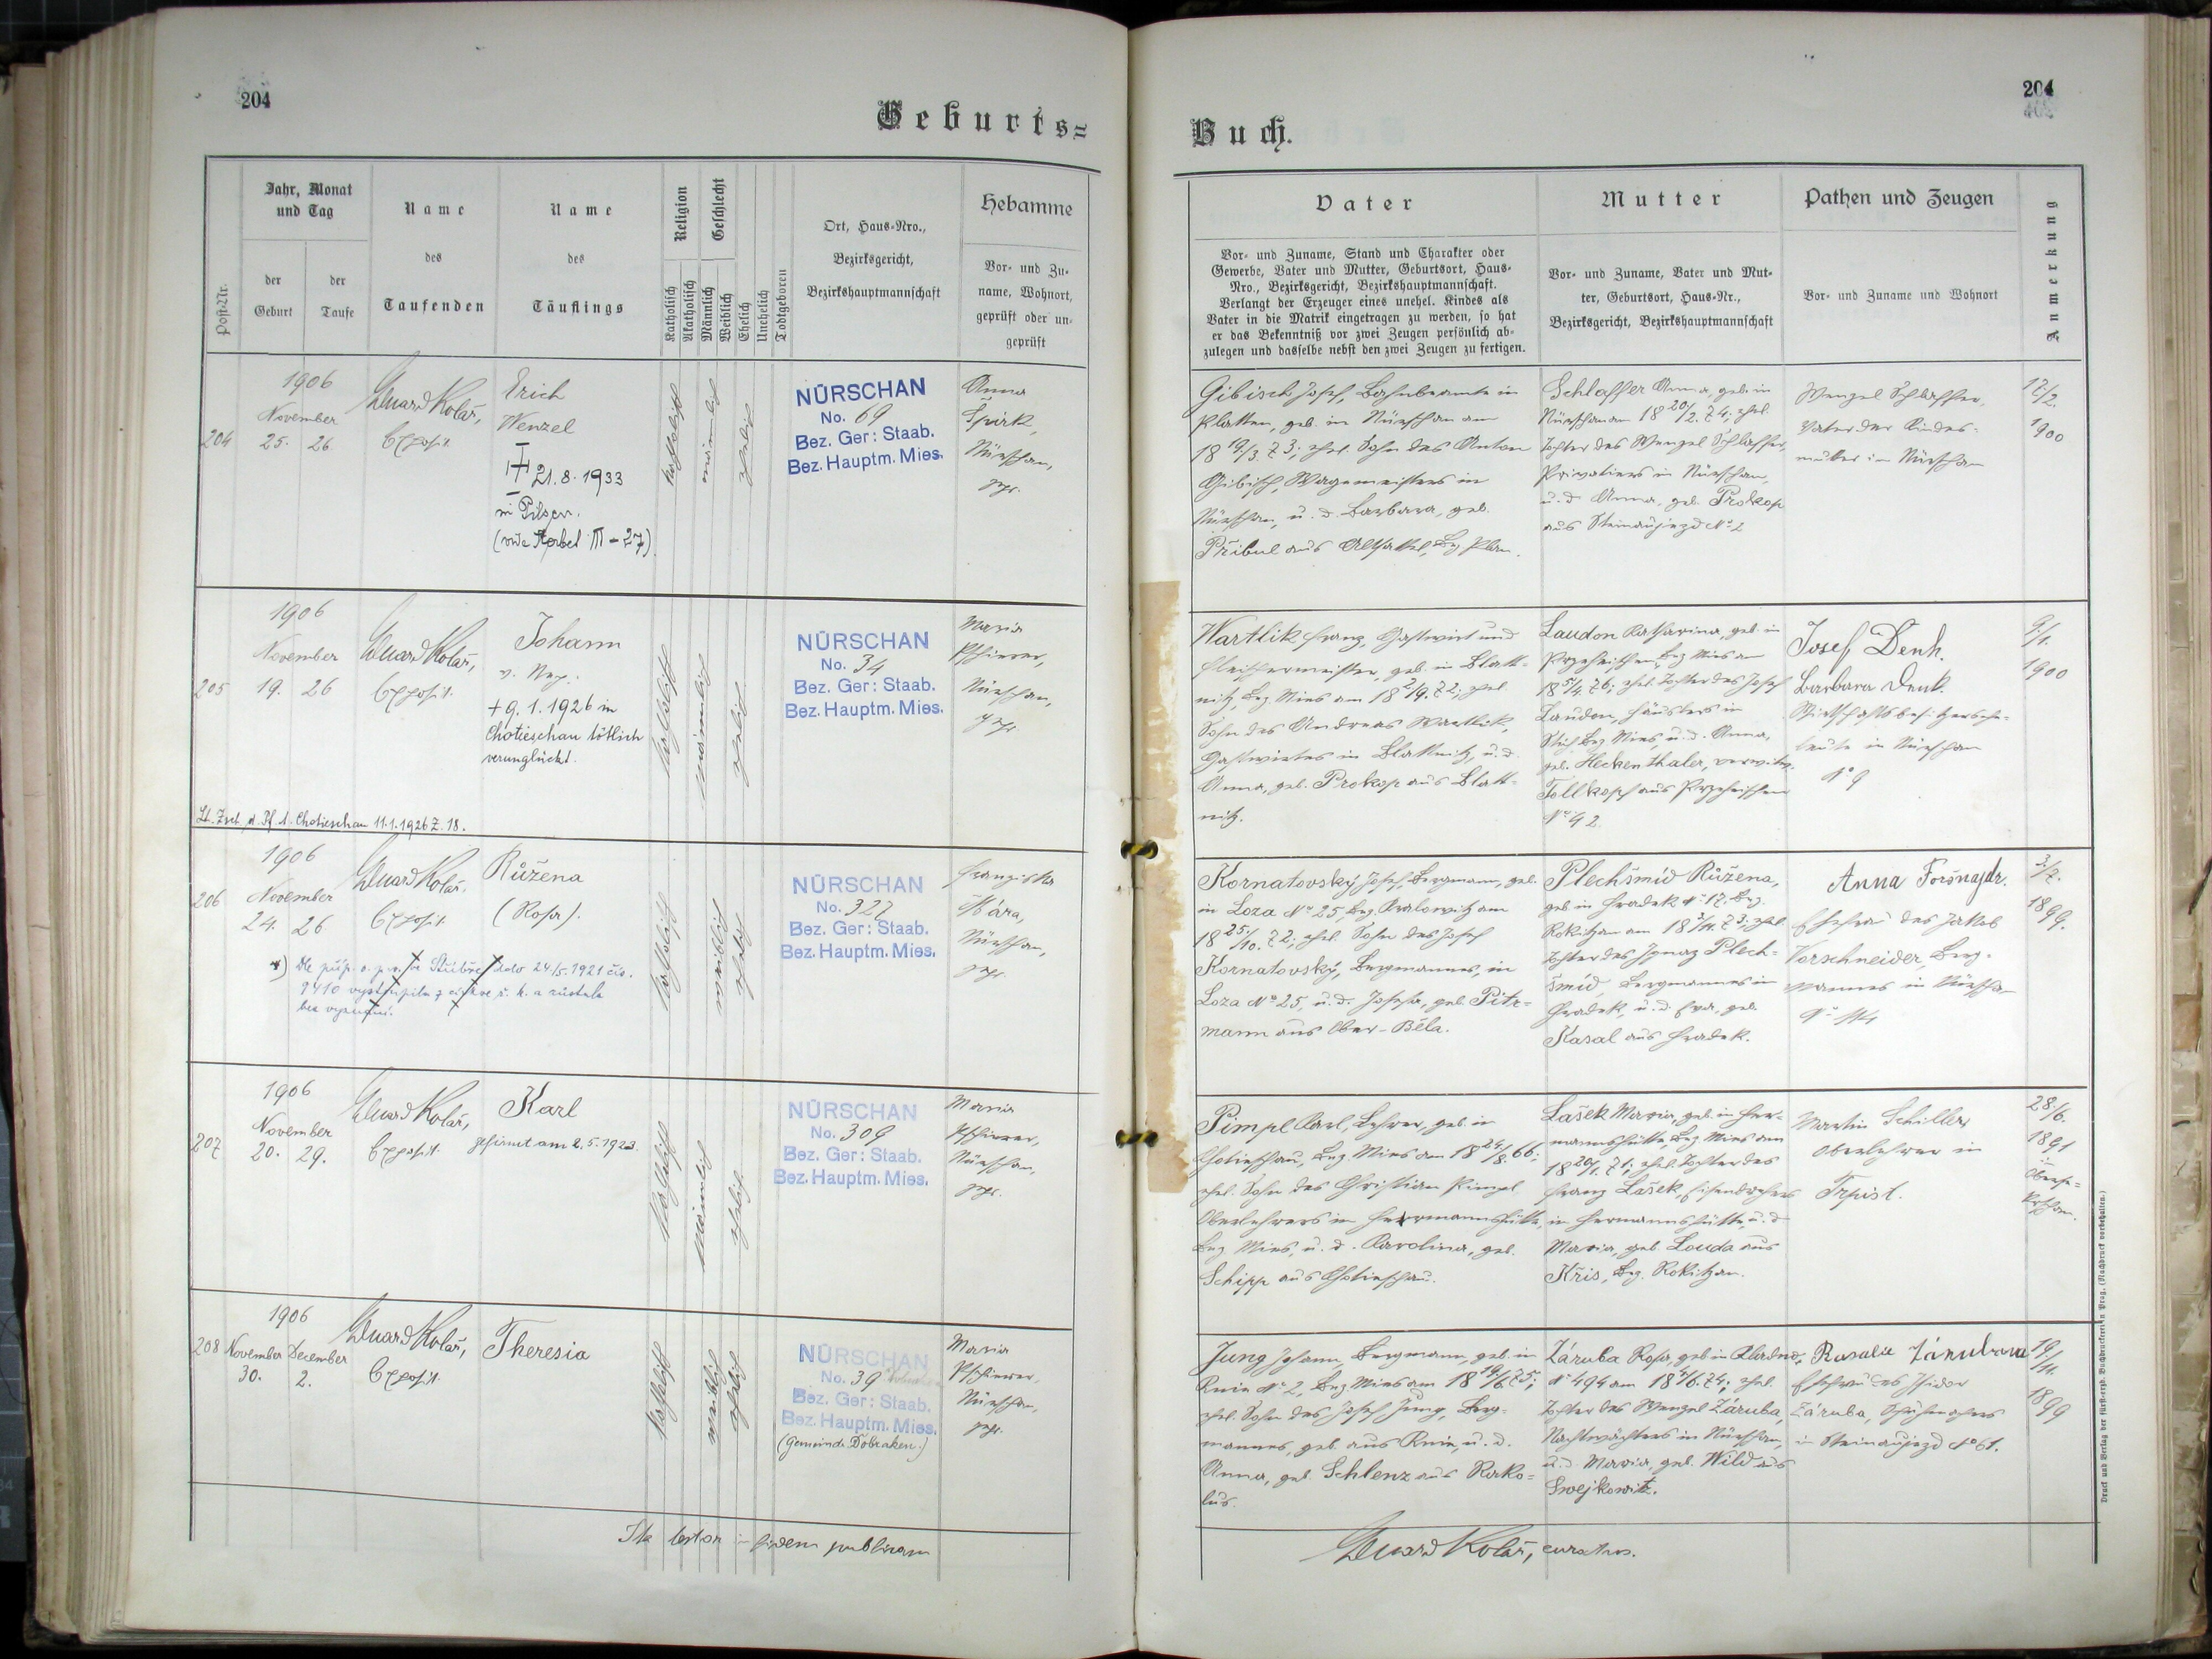 204
Geburts=
Jahr, Monat
und Tag
der
Geburt
der
Taufe
Post-Nr.
Name
des
Taufenden
Name
des
Täuflings
Religion
Katholisch
Akatholisch
Geschlecht
Männlich
Weiblich
Ehelich
Unehelich
Todtgeboren
Ort, Haus-Nro.,
Bezirksgericht,
Bezirkshauptmannschaft
Hebamme
Vor- und Zu-
name, Wohnort,
geprüft oder un-
geprüft
204
1906
November
25. 26
Eduard Kolář,
Exposit.
Erich
Wenzel
† 21.8.1933
in Pilsen.
katholisch
männlich
ehelich
NÜRSCHAN
No. 69
Bez. Ger: Staab.
Bez. Hauptm. Mies.
Anna
Nürschan,
gepr.
205
1906
November
19. 26
Eduard Kolář,
Exposit.
Johann
v. Nep.
+ 9.1.1926 in
Chotieschau tötlich
verunglückt.
Lt. Zsch. d. Pf. A. Chotieschau 11.1.1926 Z. 18.
katholisch
männlich
ehelich
NÜRSCHAN
No. 34
Bez. Ger: Staab.
Bez. Hauptm. Mies.
Maria
Pschierer,
Nürschan,
gepr.
206
1906
November
24. 26
Eduard Kolář.
Exposit.
Růžena
(Rosa).
Dle příp. o. p. v. Stříbře ddo 24/5. 1921 čís.
9410 vystoupila z církve ř. k. a zůstala
bez vyznání.
katholisch
weiblich
ehelich
NÜRSCHAN
No. 327
Bez. Ger: Staab.
Bez. Hauptm. Mies.
Franziska
Nürschan,
gepr.
207
1906
November
20. 29.
Eduard Kolář,
Exposit.
Karl
gefirmt am 2.5.1923.
katholisch
männlich
ehelich
NÜRSCHAN
No. 309
Bez. Ger: Staab.
Bez. Hauptm. Mies.
Maria
Pschierer,
Nürschan,
gepr.
208
1906
November December
30. 2.
Eduard Kolář,
Exposit.
Theresia
katholisch
weiblich
ehelich
NÜRSCHAN
No. 39
Bez. Ger: Staab.
Bez. Hauptm. Mies.
(Gemeinde Dobraken.)
Maria
Pschierer,
Nürschan,
gepr.
Ita testor in fidem publicam
204
Buch.
Vater
Vor- und Zuname, Stand und Charakter oder
Gewerbe, Vater und Mutter, Geburtsort, Haus-
Nro., Bezirksgericht, Bezirkshauptmannschaft.
Verlangt der Erzeuger eines unehel. Kindes als
Vater in die Matrik eingetragen zu werden, so hat
er das Bekenntniß vor zwei Zeugen persönlich ab-
zulegen und dasselbe nebst den zwei Zeugen zu fertigen.
Mutter
Vor- und Zuname, Vater und Mut-
ter, Geburtsort, Haus-Nr.,
Bezirksgericht, Bezirkshauptmannschaft
Pathen und Zeugen
Vor- und Zuname und Wohnort
Anmerkung
Gibisch Josef, Bahnbeamte in
Platten, geb. in Nürschan am
18 19/3. 73; ehel. Sohn des Anton
Gibisch, Wagemeisters in
Nürschan, u. d. Barbara, geb.
Přibul aus Altsattel, Bz. Plan.
Schlaffer Anna, geb. in
Nürschan am 18 20/2. 74; ehel.
Tochter des Wenzel Schlaffer,
Privatiers in Nürschan,
u. d. Anna, geb. Prokop
aus Steinaujezd No 2
Wenzel Schlaffer,
Vater der Kindes-
mutter in Nürschan
12/2.
1900
Wartlik Franz, Gastwirt und
Fleischermeister, geb. in Blatt-
nitz, Bez. Mies am 18 2/9. 72; ehel.
Sohn des Andreas Wartlik,
Gastwirtes in Blattnitz, u. d.
Anna, geb. Prokop aus Blatt-
nitz.
Laudon Katharina, geb. in
Przeheischen, Bez. Mies am
18 5/4. 76; ehel. Tochter des Josef
Laudon, Häuslers in
Bez. Mies, u. d. Anna,
geb. Heckenthaler, verwitw.
Tollkopf aus Przeheischen
No 92
Josef Denk.
Barbara Denk.
Wirtschaftsbesitzersehe-
leute in Nürschan
No 9
9./1.
1900
Kornatovský Josef, Bergmann, geb.
in Loza No 25, Bez. Kralowitz am
18 25./10. 72; ehel. Sohn des Josef
Kornatovský, Bergmannes, in
Loza No 25, u. d. Josefa, geb. Pitr-
mann aus Ober-Běla.
Plechšmíd Růžena,
geb. in Hradek No 17, Bez.
Rokitzan am 18 3/11. 73; ehel.
Tochter des Ignaz Plech-
šmíd, Bergmannes in
Hradek, u. d. Eva, geb.
Kasal aus Hradek.
Anna Foršnajdr.
Ehefrau des Jakob
Vorschneider, Berg-
mannes in Nürschan
No 114
3./7.
1899.
Pimpl Karl, Lehrer, geb. in
Chotieschau, Bez. Mies am 18 24/8. 66;
ehel. Sohn des Christian Pimpl
Oberlehrers in Hermannshütte,
Bez. Mies, u. d. Karolina, geb.
Schipp aus Chotieschau.
Lašek Maria, geb. in Her-
mannshütte, Bez. Mies am
18 20/1. 71; ehel. Tochter des
Franz Lašek, Eisendrehers
in Hermannshütte, u. d.
Maria, geb. Louda aus
Křis, Bez. Rokitzan.
Martin Schiller,
Oberlehrer in
Trpist.
28./6.
1891
Jung Johann, Bergmann, geb. in
Rnin No 2, Bez. Mies am 18 19/6. 75;
ehel. Sohn des Josef Jung, Berg-
mannes, geb. aus Rnin, u. d.
Anna, geb. Schlenz aus Rako-
lus.
Záruba Rosa, geb. in Kladno,
No 494 am 18 4/6. 74; ehel.
Tochter des Wenzel Záruba,
Nachtwächters in Nürschan,
u. d. Maria, geb. Wild aus
Swojkowitz.
Rosalie Zárubova
Ehefrau des Isidor
Záruba, Schuhmachers
in Steinaujezd No 61.
19./11.
1899
Eduard Kolář, curatus.
Druck und Verlag der fürst-erzb. Buchdruckerei in Prag. (Nachdruck vorbehalten.)